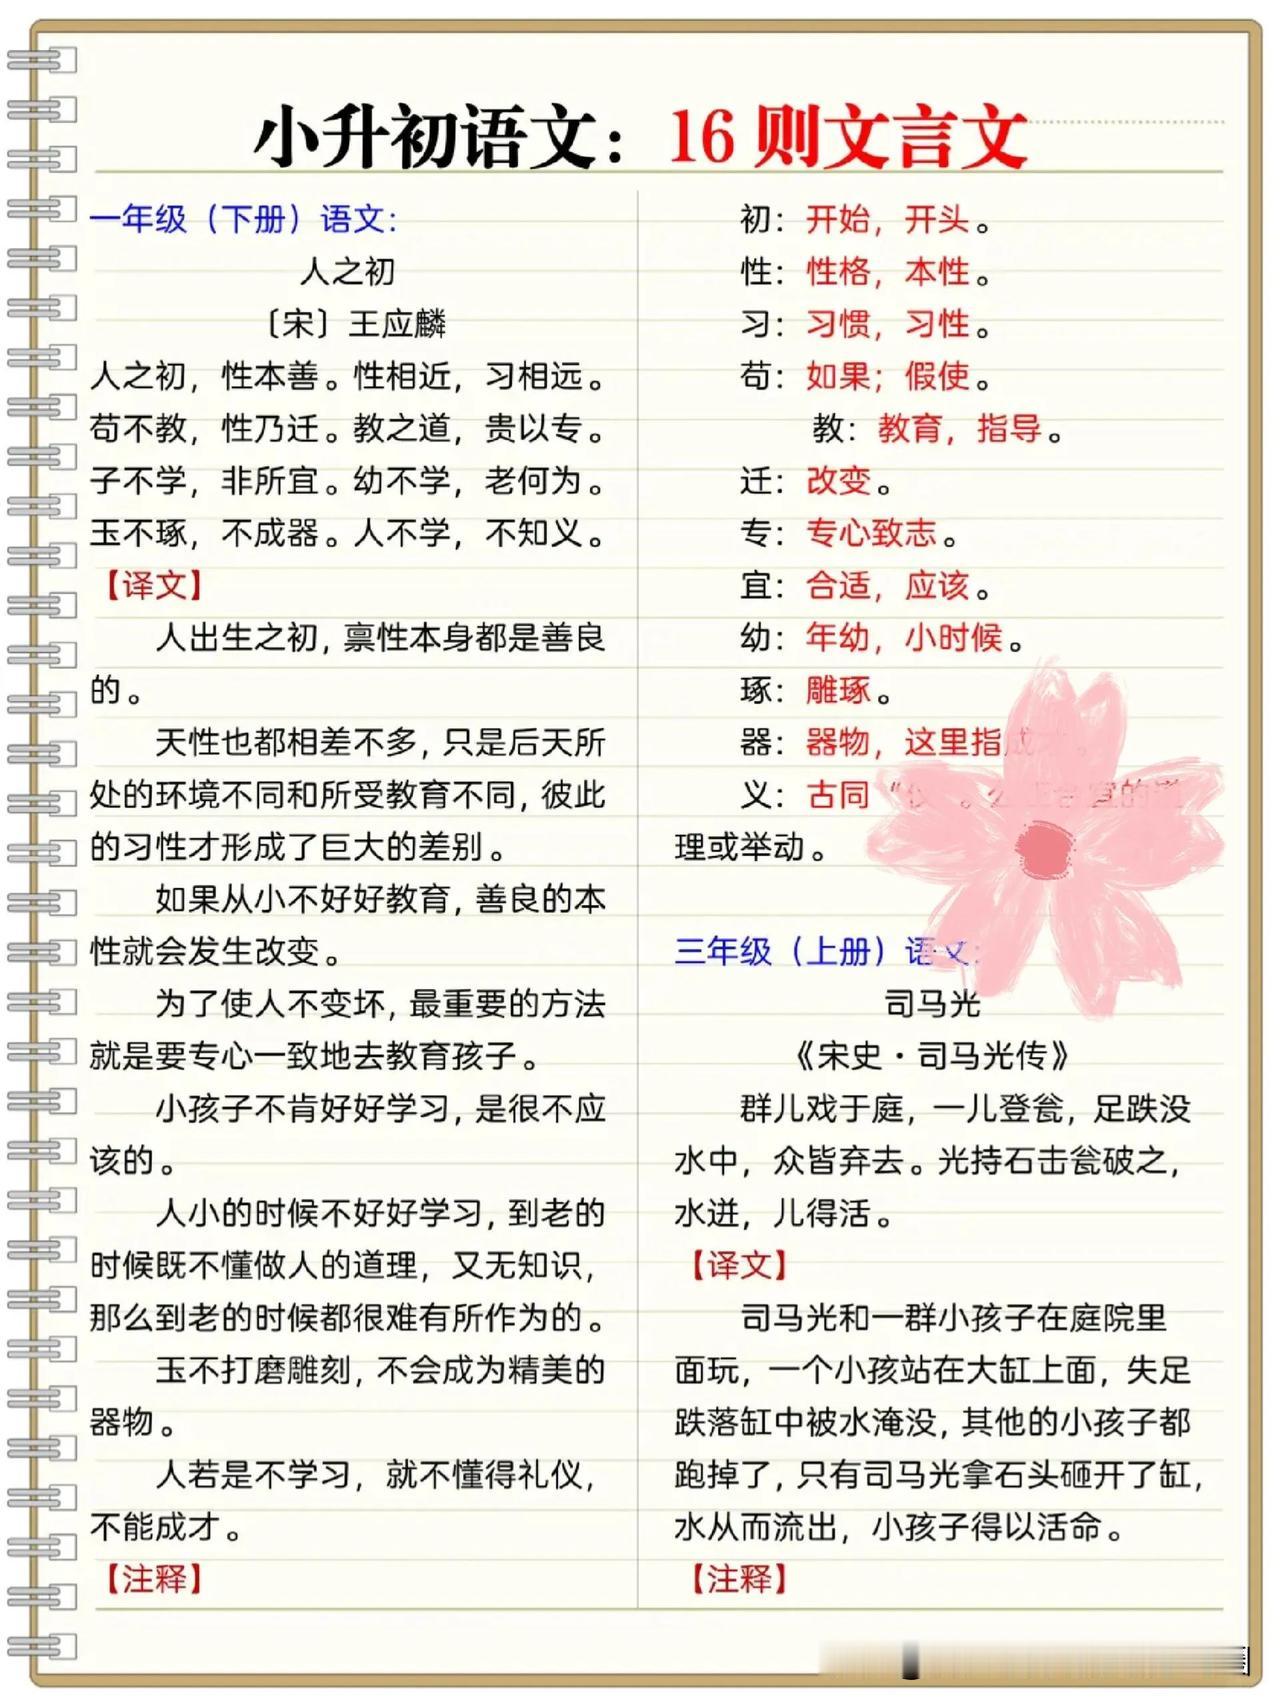 小升初语文：16 则文言文
一年级（下册）语文：
人之初
〔宋〕王应麟
人之初，性本善。性相近，习相远。
苟不教，性乃迁。教之道，贵以专。
子不学，非所宜。幼不学，老何为。
玉不琢，不成器。人不学，不知义。
【译文】
人出生之初，禀性本身都是善良
的。
天性也都相差不多，只是后天所
处的环境不同和所受教育不同，彼此
的习性才形成了巨大的差别。
如果从小不好好教育，善良的本
性就会发生改变。
为了使人不变坏，最重要的方法
就是要专心一致地去教育孩子。
小孩子不肯好好学习，是很不应
该的。
人小的时候不好好学习，到老的
时候既不懂做人的道理，又无知识，
那么到老的时候都很难有所作为的。
玉不打磨雕刻，不会成为精美的
器物。
人若是不学习，就不懂得礼仪，
不能成才。
【注释】
初：开始，开头。
性：性格，本性。
习：习惯，习性。
苟：如果；假使。
教：教育，指导。
迁：改变。
专：专心致志。
宜：合适，应该。
幼：年幼，小时候。
琢：雕琢。
器：器物，这里指成
义：古同 宜的
理或举动。
三年级（上册）语文：
司马光
《宋史·司马光传》
群儿戏于庭，一儿登瓮，足跌没
水中，众皆弃去。光持石击瓮破之，
水迸，儿得活。
【译文】
司马光和一群小孩子在庭院里
面玩，一个小孩站在大缸上面，失足
跌落缸中被水淹没，其他的小孩子都
跑掉了，只有司马光拿石头砸开了缸，
水从而流出，小孩子得以活命。
【注释】